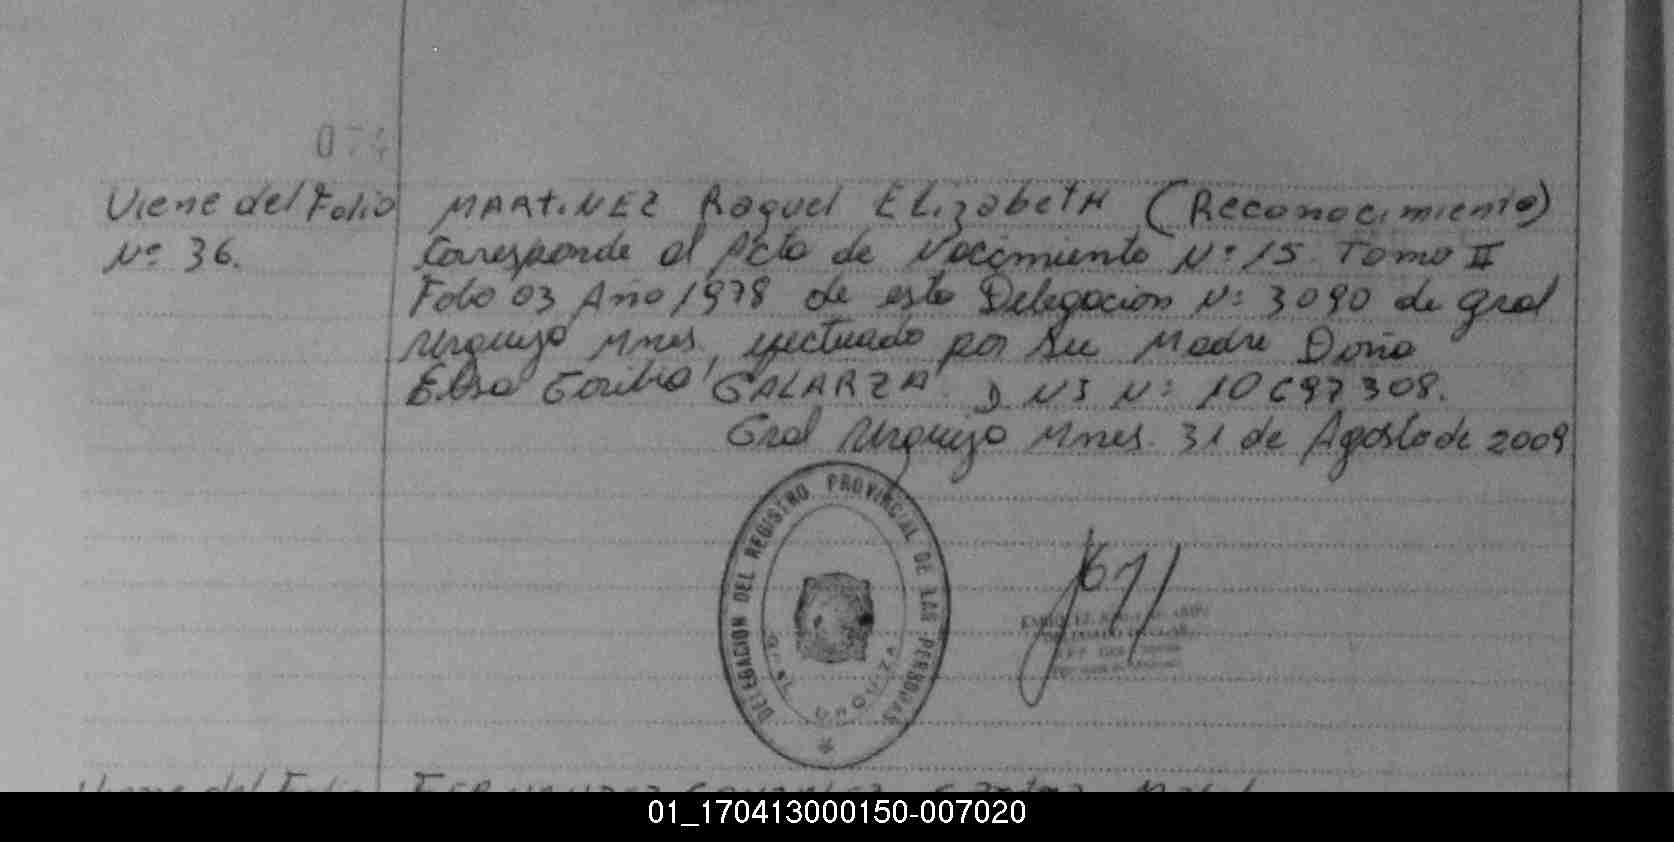 Viene del Folio
Nº 36.
MARTINEZ Raquel ELizabetH (Reconocimiento)
Corresponde al Acta de Nacimiento Nº 15. Tomo II
Folio 03 Año 1978 de esta Delegación Nº 3090 de Gral
Urquiza Mnes. efectuado por su Madre Doña
Elsa Toribia GALARZA. DNI Nº 10697308.
Gral Urquiza Mnes. 31 de Agosto de 2009
DELEGACION DEL REGISTRO PROVINCIAL DE LAS PERSONAS
GRAL URQUIZA
Viene del Folio
01_170413000150-007020